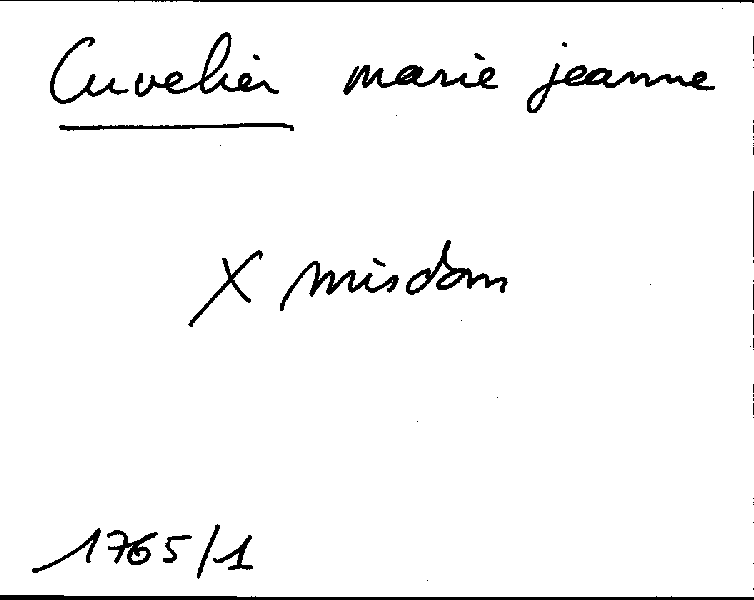 Cuvelier marie jeanne
X misdom
1765/1